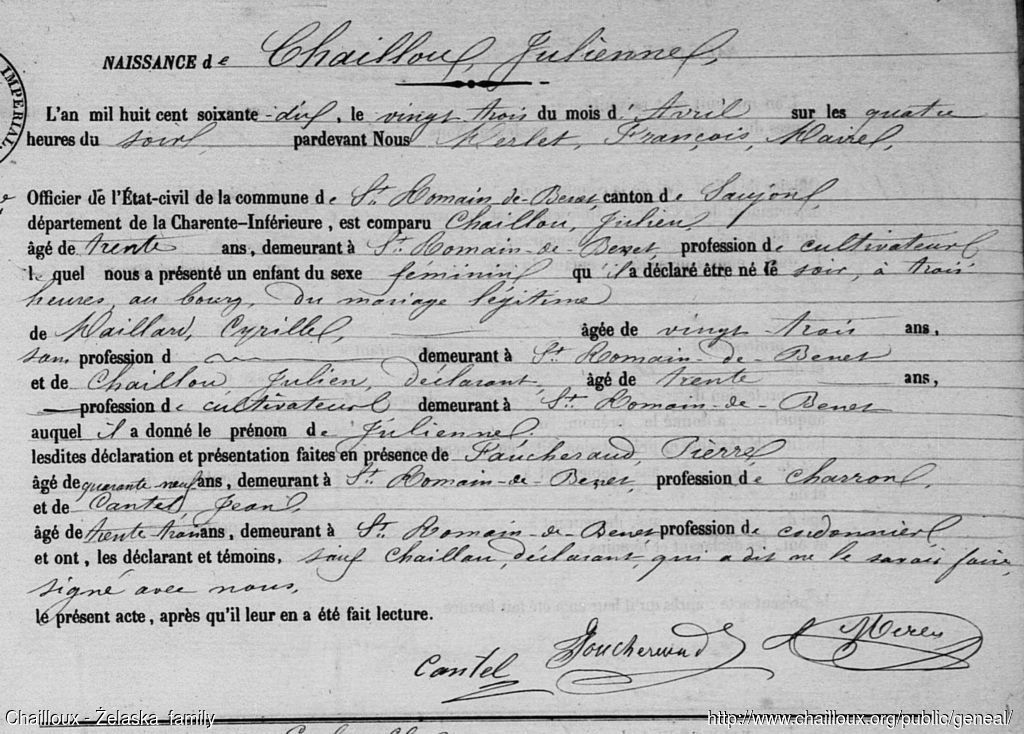 IMPERIAL.
NAISSANCE de Chaillou, Julienne,
L'an mil huit cent soixante-dix, le vingt trois du mois d'Avril sur les quatre
heures du soir, pardevant Nous Merlet, François, Maire,
Officier de l'État-civil de la commune de St. Romain-de-Benet, canton de Saujon,
département de la Charente-Inférieure, est comparu Chaillou, Julien,
âgé de trente ans, demeurant à St. Romain-de-Benet, profession de cultivateur
lequel nous a présenté un enfant du sexe féminin qu'il a déclaré être né le soir, à trois
heures, au bourg, du mariage légitime
de Maillard, Cyrille, âgée de vingt trois ans,
sans profession d demeurant à St. Romain-de-Benet
et de Chaillou Julien, déclarant, âgé de trente ans,
profession de cultivateur demeurant à St. Romain-de-Benet
auquel il a donné le prénom de Julienne.
lesdites déclaration et présentation faites en présence de Faucheraud, Pierre
âgé de quarante neuf ans, demeurant à St. Romain-de-Benet, profession de charron,
et de Cantel, Jean,
âgé de trente-trois ans, demeurant à St. Romain-de-Benet profession de cordonnier
et ont, les déclarant et témoins, sauf Chaillou, déclarant, qui a dit ne le savoir faire,
signé avec nous,
le présent acte, après qu'il leur en a été fait lecture.
Cantel Foucheraud
Chailloux - Żelaska family http://www.chailloux.org/public/geneal/